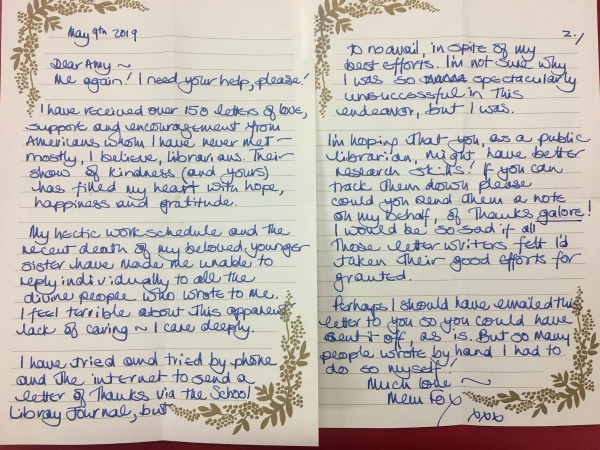 May 9th 2019
Dear Amy ~
Me again! I need your help, please!
I have received over 150 letters of love,
support and encouragement from
Americans whom I have never met –
mostly, I believe, librarians. Their
show of kindness (and yours)
has filled my heart with hope,
happiness and gratitude.
My hectic work schedule and the
recent death of my beloved younger
sister have made me unable to
reply individually to all the
divine people who wrote to me.
I feel terrible about this apparent
lack of caring ~ I care deeply.
I have tried and tried by phone
and the internet to send a
letter of thanks via the School
Library Journal, but
2./
to no avail, in spite of my
best efforts. I'm not sure why
I was so spectacularly
unsuccessful in this
endeavor, but I was.
I'm hoping that you, as a public
librarian, might have better
research skills! If you can
track them down please
could you send them a note
on my behalf, of thanks galore!
I would be so sad if all
those letter writers felt I'd
taken their good efforts for
granted.
Perhaps I should have emailed this
letter to you so you could have
sent it off, as is. But so many
people wrote by hand I had to
do so myself!
Much love ~
Mem Fox
xoxo